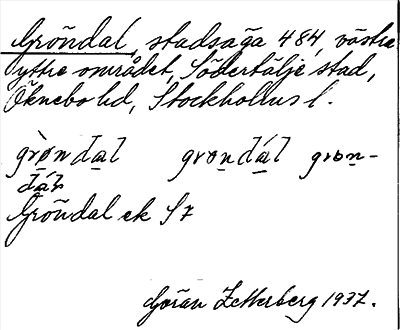 Gröndal, stadsäga 484, västra
yttre området, Södertälje stad,
Öknebo hd, Stockholms l.
grøn dal grøndál grøn-
dál
Gröndal ek S 7
Göran Zetterberg 1937.